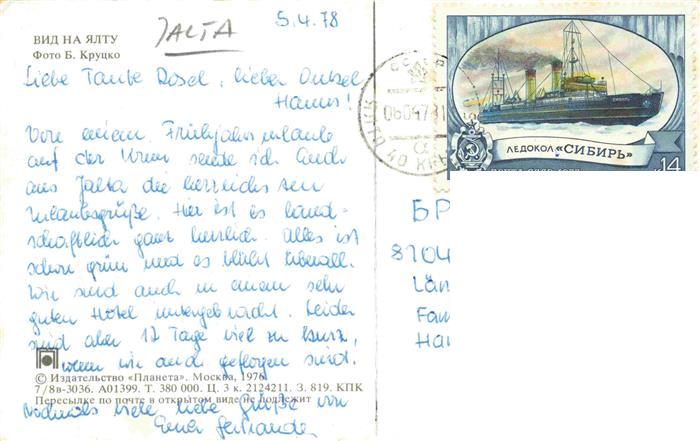 ВИД НА ЯЛТУ
Фото Б. Круцко
JALTA
5.4.78
Liebe Tante Rosel, lieber Onkel
Hanns!
Von meinem Frühjahrsurlaub
auf der Krim sende ich Euch
aus Jalta die herzlichsten
Urlaubsgrüße. Hier ist es land-
schaftlich ganz herrlich. Alles ist
schon grün und es blüht überall.
Wir sind auch in einem sehr
guten Hotel untergebracht. Leider
sind aber 12 Tage viel zu kurz,
wenn wir auch geflogen sind.
© Издательство «Планета». Москва, 1976
7/8в-3036. А01399. Т. 380 000. Ц. 3 к. 2124211. З. 819. КПК
Пересылке по почте в открытом виде не подлежит
Nochmals viele liebe Grüße von
Eurer
СССР
ЛЕДОКОЛ «СИБИРЬ»
14
БР
8104
Län
Fam
Han